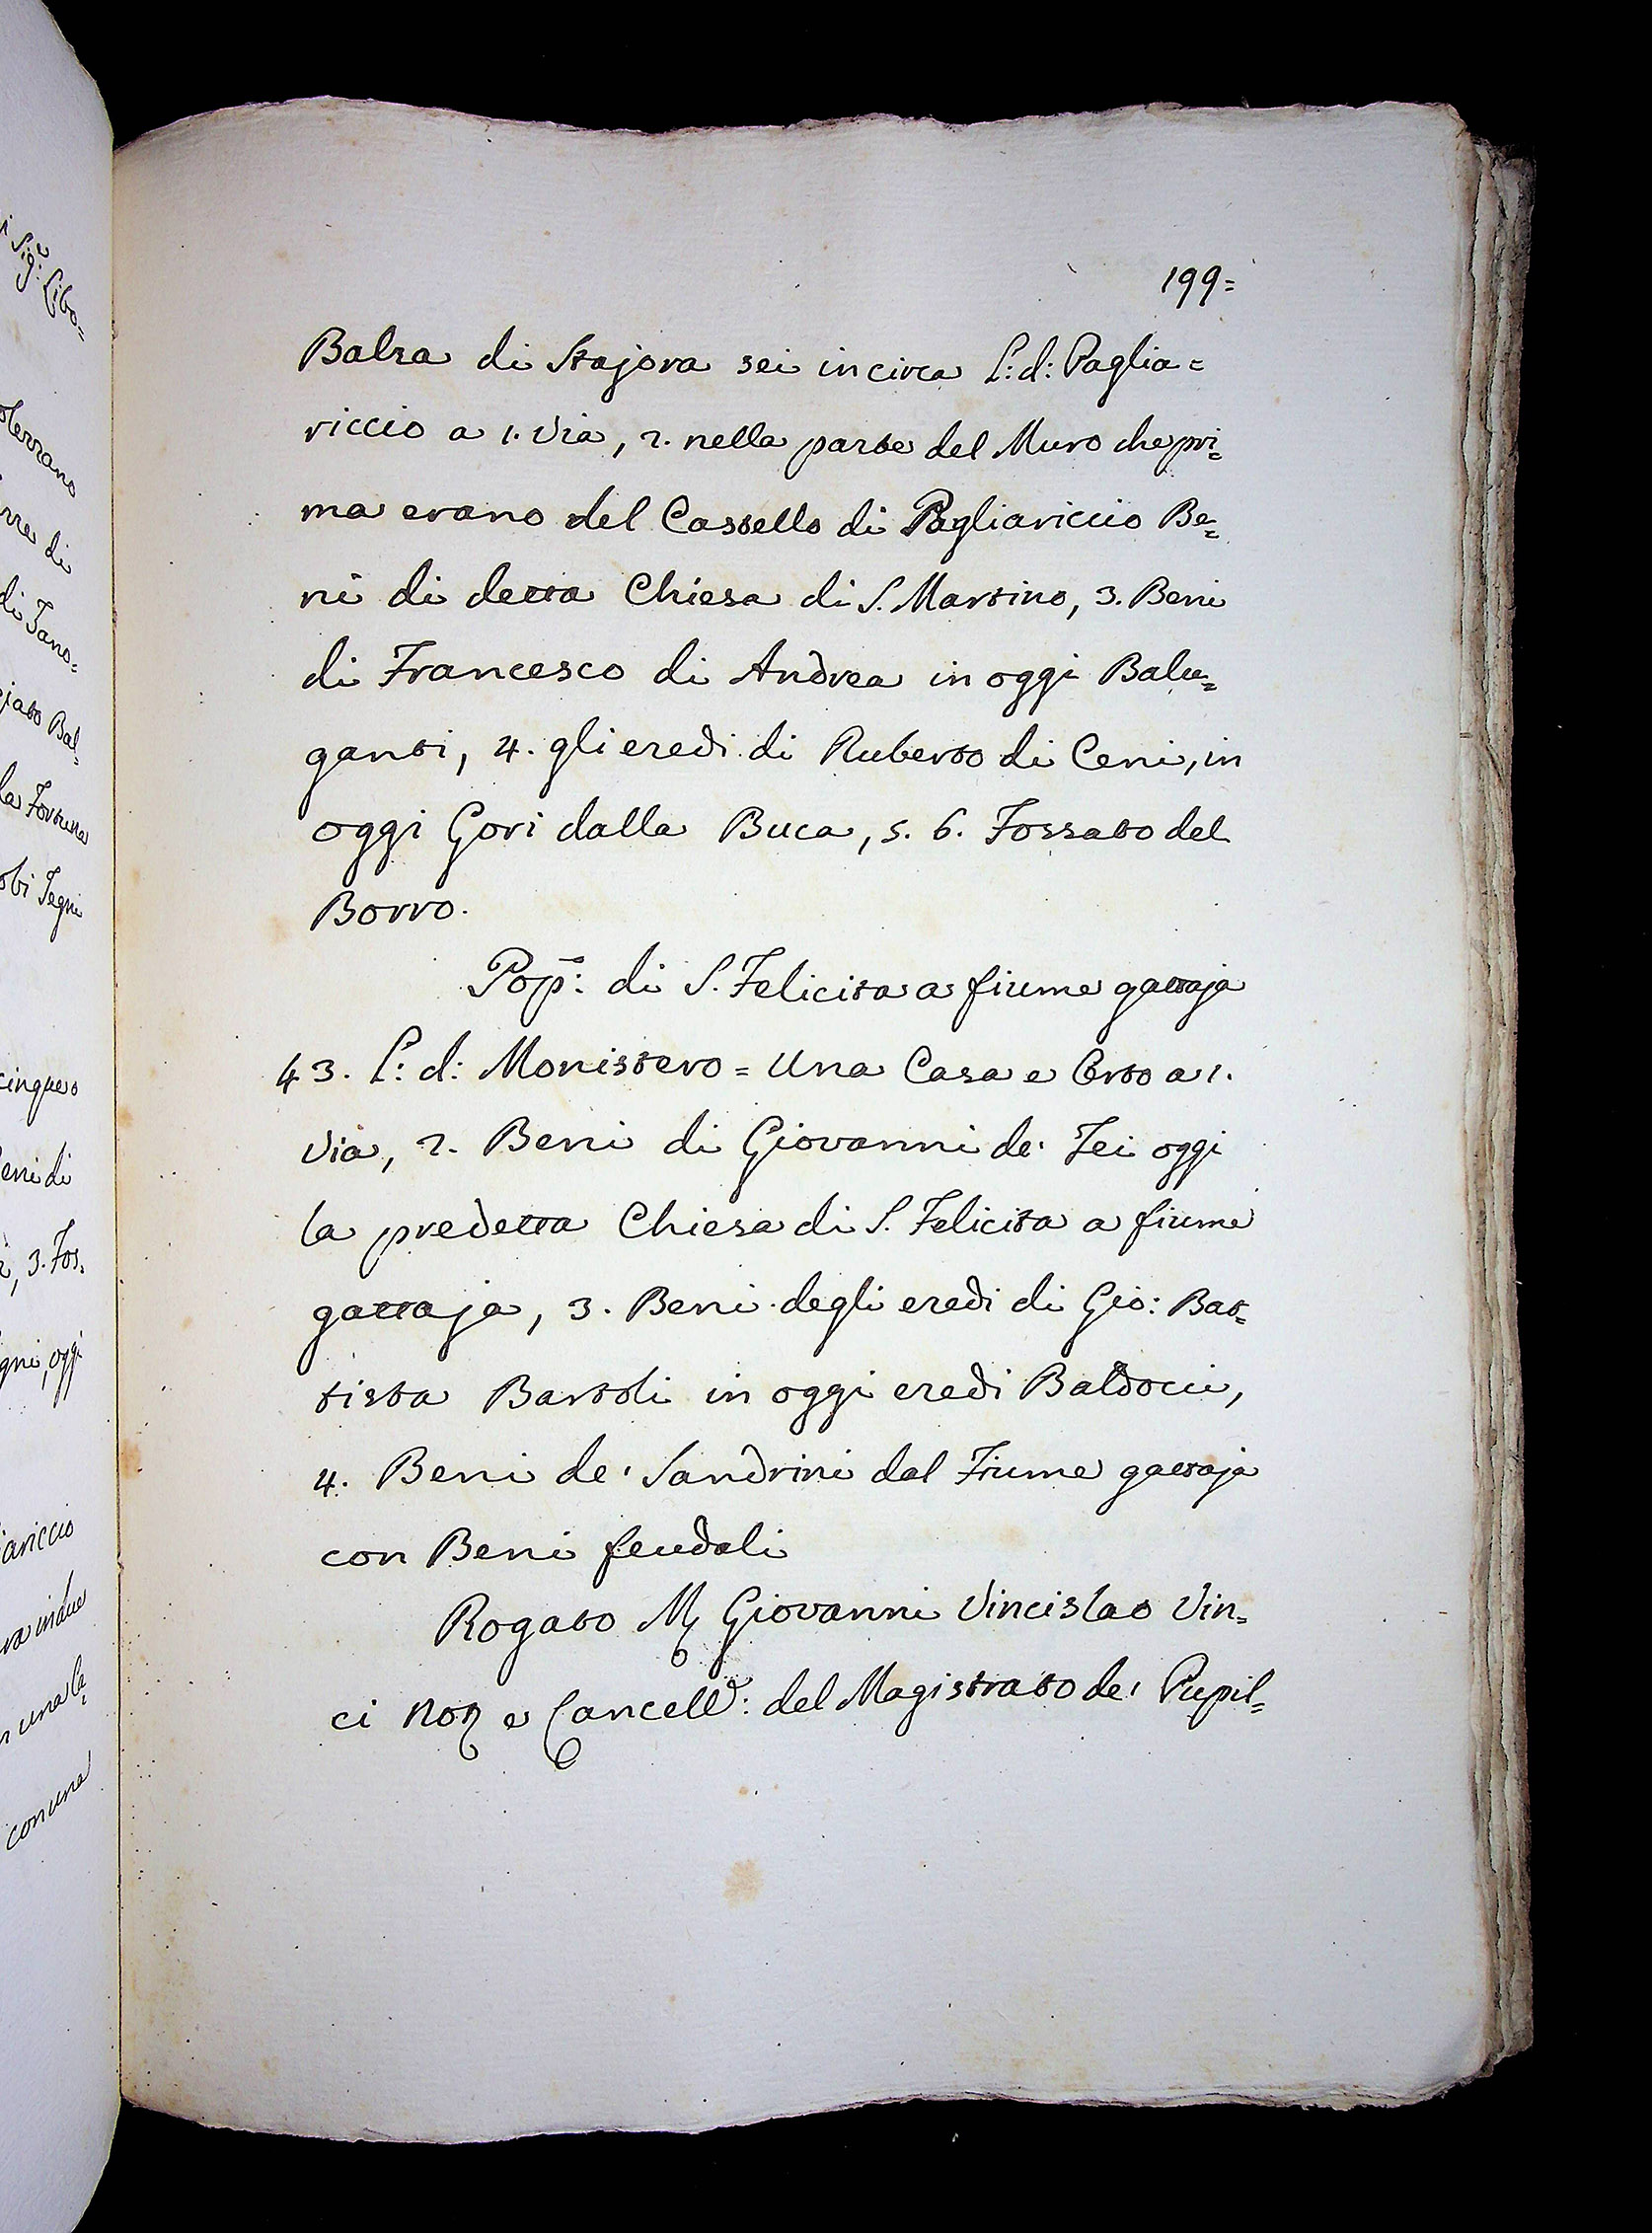 199=
Balza di Stajora sei incirca L: d: Paglia=
riccio a 1. Via, 2. nella parte del Muro che pri=
ma erano del Castello di Pagliariccio Be=
ni di detta Chiesa di S. Martino, 3. Beni
di Francesco di Andrea in oggi Balu=
ganti, 4. gli eredi di Ruberto di Ceni, in
oggi Gori dalla Buca, 5. 6. Fossato del
Borro.
Pop: di S. Felicita a fiume gattaja
43. L: d: Monistero = Una Casa e Orto a 1.
Via, 2. Beni di Giovanni de' Fei oggi
la predetta Chiesa di S. Felicita a fiume
gattaja, 3. Beni degli eredi di Gio: Bat=
tista Bartoli in oggi eredi Baldocci,
4. Beni de' Sandrini dal Fiume gattaja
con Beni feudali
Rogato Giovanni Vincislao Vin=
ci e Cancell: del Magistrato de' Pupil=
i Sig: Cibo=
rre di
di Zano=
jato Bal=
la Fortuna
cinque
eni di
3. Fos=
gni, oggi
iariccio
con una